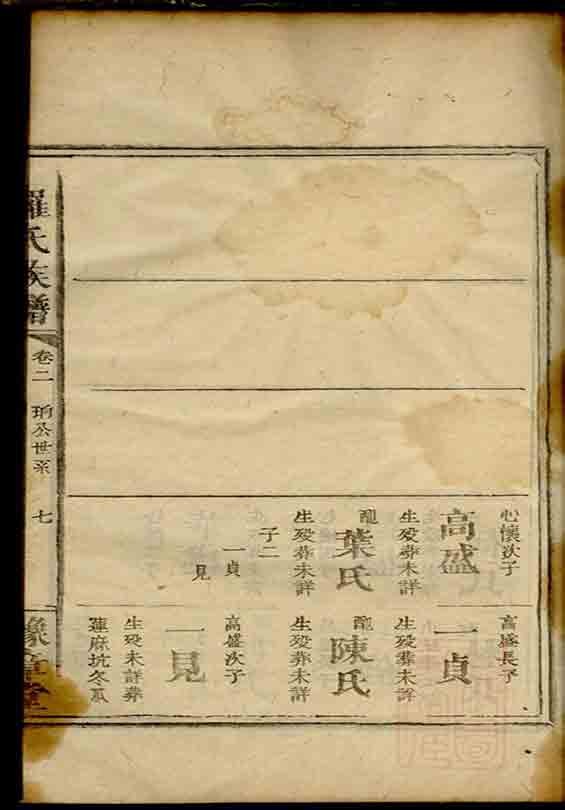 心懷次子
高盛
生殁葬未詳
配葉氏
生殁葬未詳
子二
一貞
一見
高盛長子
一貞
生殁葬未詳
配陳氏
生殁葬未詳
高盛次子
一見
生殁未詳葬
蓮麻坑冬瓜
羅氏族譜
卷二
公世系
七
豫章堂